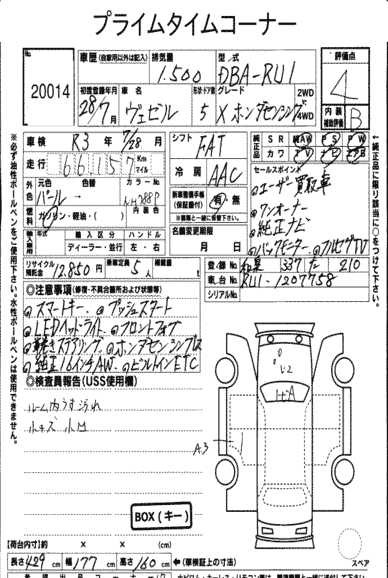 プライムタイムコーナー
20014
車歴 (自家用以外は記入) 排気量 1.500 型式 DBA-RU1
評価点 4
内装補助評価 B
初度登録年月 28/7月 車名 ヴェゼル 形状・ドア数 5 グレード X ホンダセンシング 2WD 4WD
車検 R3年 7/28月 シフト FAT
純正品 SR AW PS PW
カワ
走行 66.157 Km マイル
冷房 AAC
セールスポイント
ユーザー買取車
ワンオーナー
純正ナビ
バックモニター フルセグTV
外色 元色 パール 色替 カラーNo. NH788P
燃料 ガソリン・軽油・( ) 内装色
新車整備手帳 (保証書付) 有・無
※書類と一緒に保管下さい。
輸入車 輸入区分 ハンドル
ディーラー・並行 左・右
名義変更期限 月 日
リサイクル預託金 12.850円 乗車定員 5人
登録No. 和泉 337 210
車台No. RU1-1207758
シリアルNo.
※必ず油性ボールペンをご使用下さい。水性ボールペンは使用できません。
純正品に限り該当に○をつけて下さい。
◎注意事項 (修復・不具合箇所および状態等)
スマートキー プッシュスタート
LEDヘッドライト フロントフォグ
革巻きステアリング ホンダセンシング
純正16インチAW ビルトインETC
◎検査員報告 (USS使用欄)
ルーム内うす汚れ
小キズ 小凹
A3
BOX(キー)
【荷台内寸】約 × × cm
長さ 429 cm 幅 177 cm 高さ 160 cm ←(車検証上の寸法)
スペア